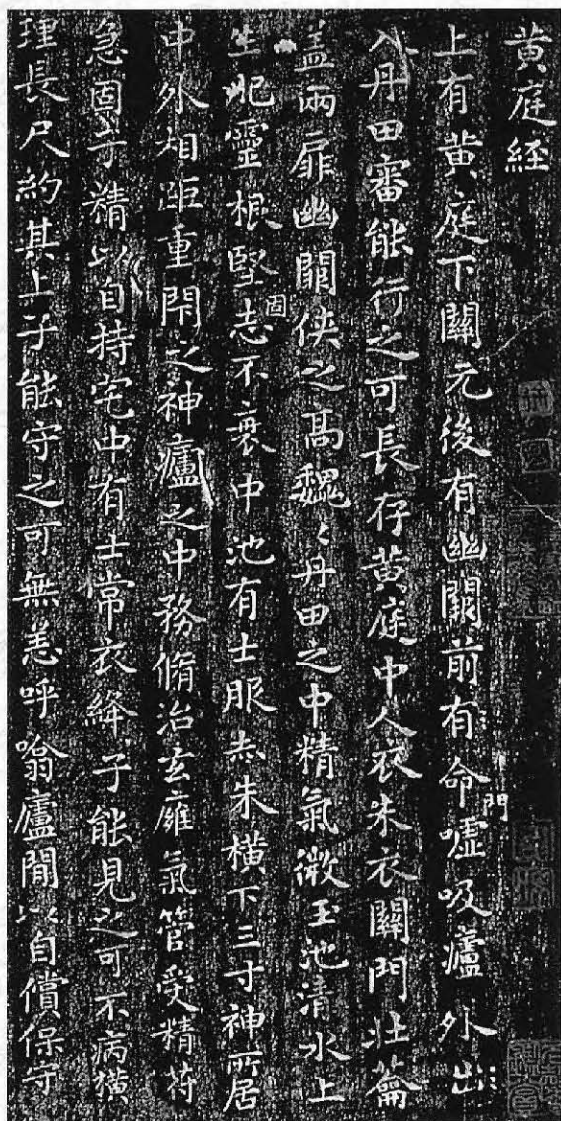 黄庭經
上有黄庭下關元後有幽闕前有命門噓吸廬外出
入丹田審能行之可長存黄庭中人衣朱衣關門壯籥
盖兩扉幽闕俠之高魏〻丹田之中精氣微玉池清水上
生肥靈根堅固志不衰中池有士服赤朱橫下三寸神所居
中外相距重閇之神廬之中務脩治玄廱氣管受精苻
急固子精以自持宅中有士常衣絳子能見之可不病橫
理長尺約其上子能守之可無恙呼噏廬間以自償保守